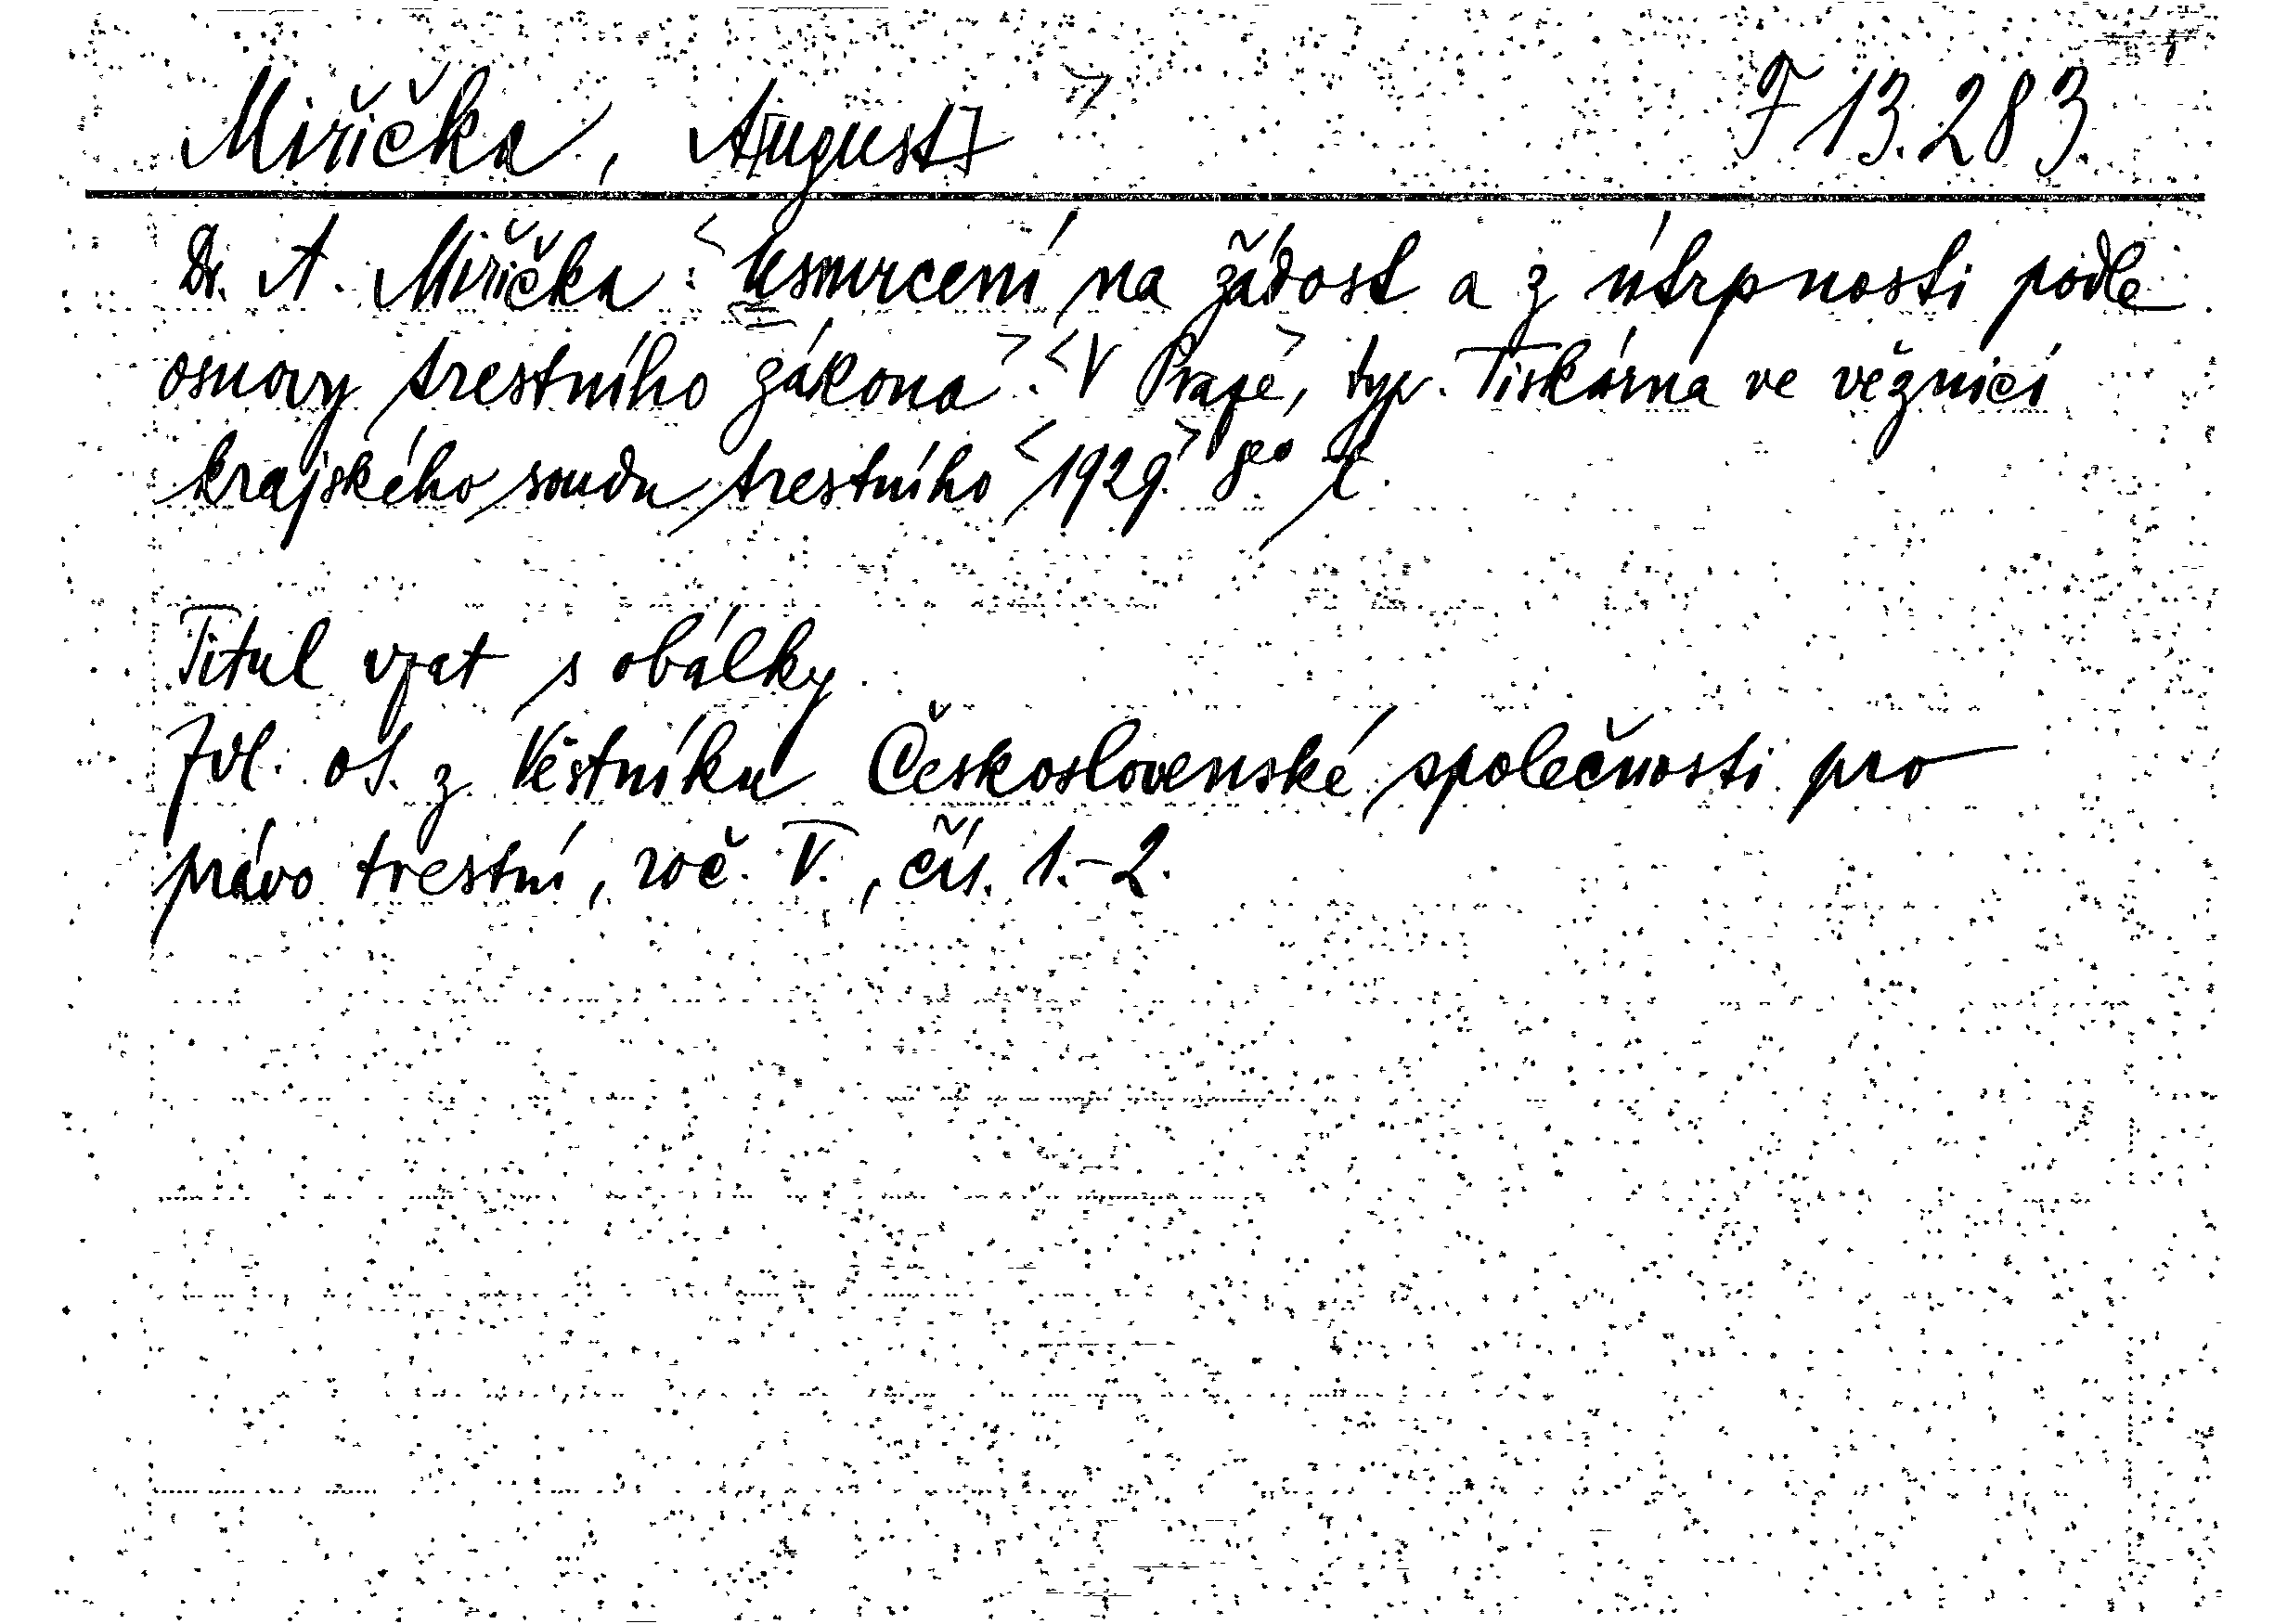 Miřička, A[ugust] F 13.283.
Dr. A. Miřička: Usmrcení na žádost a z útrpnosti podle
osnovy trestního zákona. V Praze, typ. Tiskárna ve věznici
krajského soudu trestního 1929. 8°
Titul vzat s obálky.
Zvl. ot. z Věstníku Československé společnosti pro
právo trestní, roč. V., čís. 1.-2.